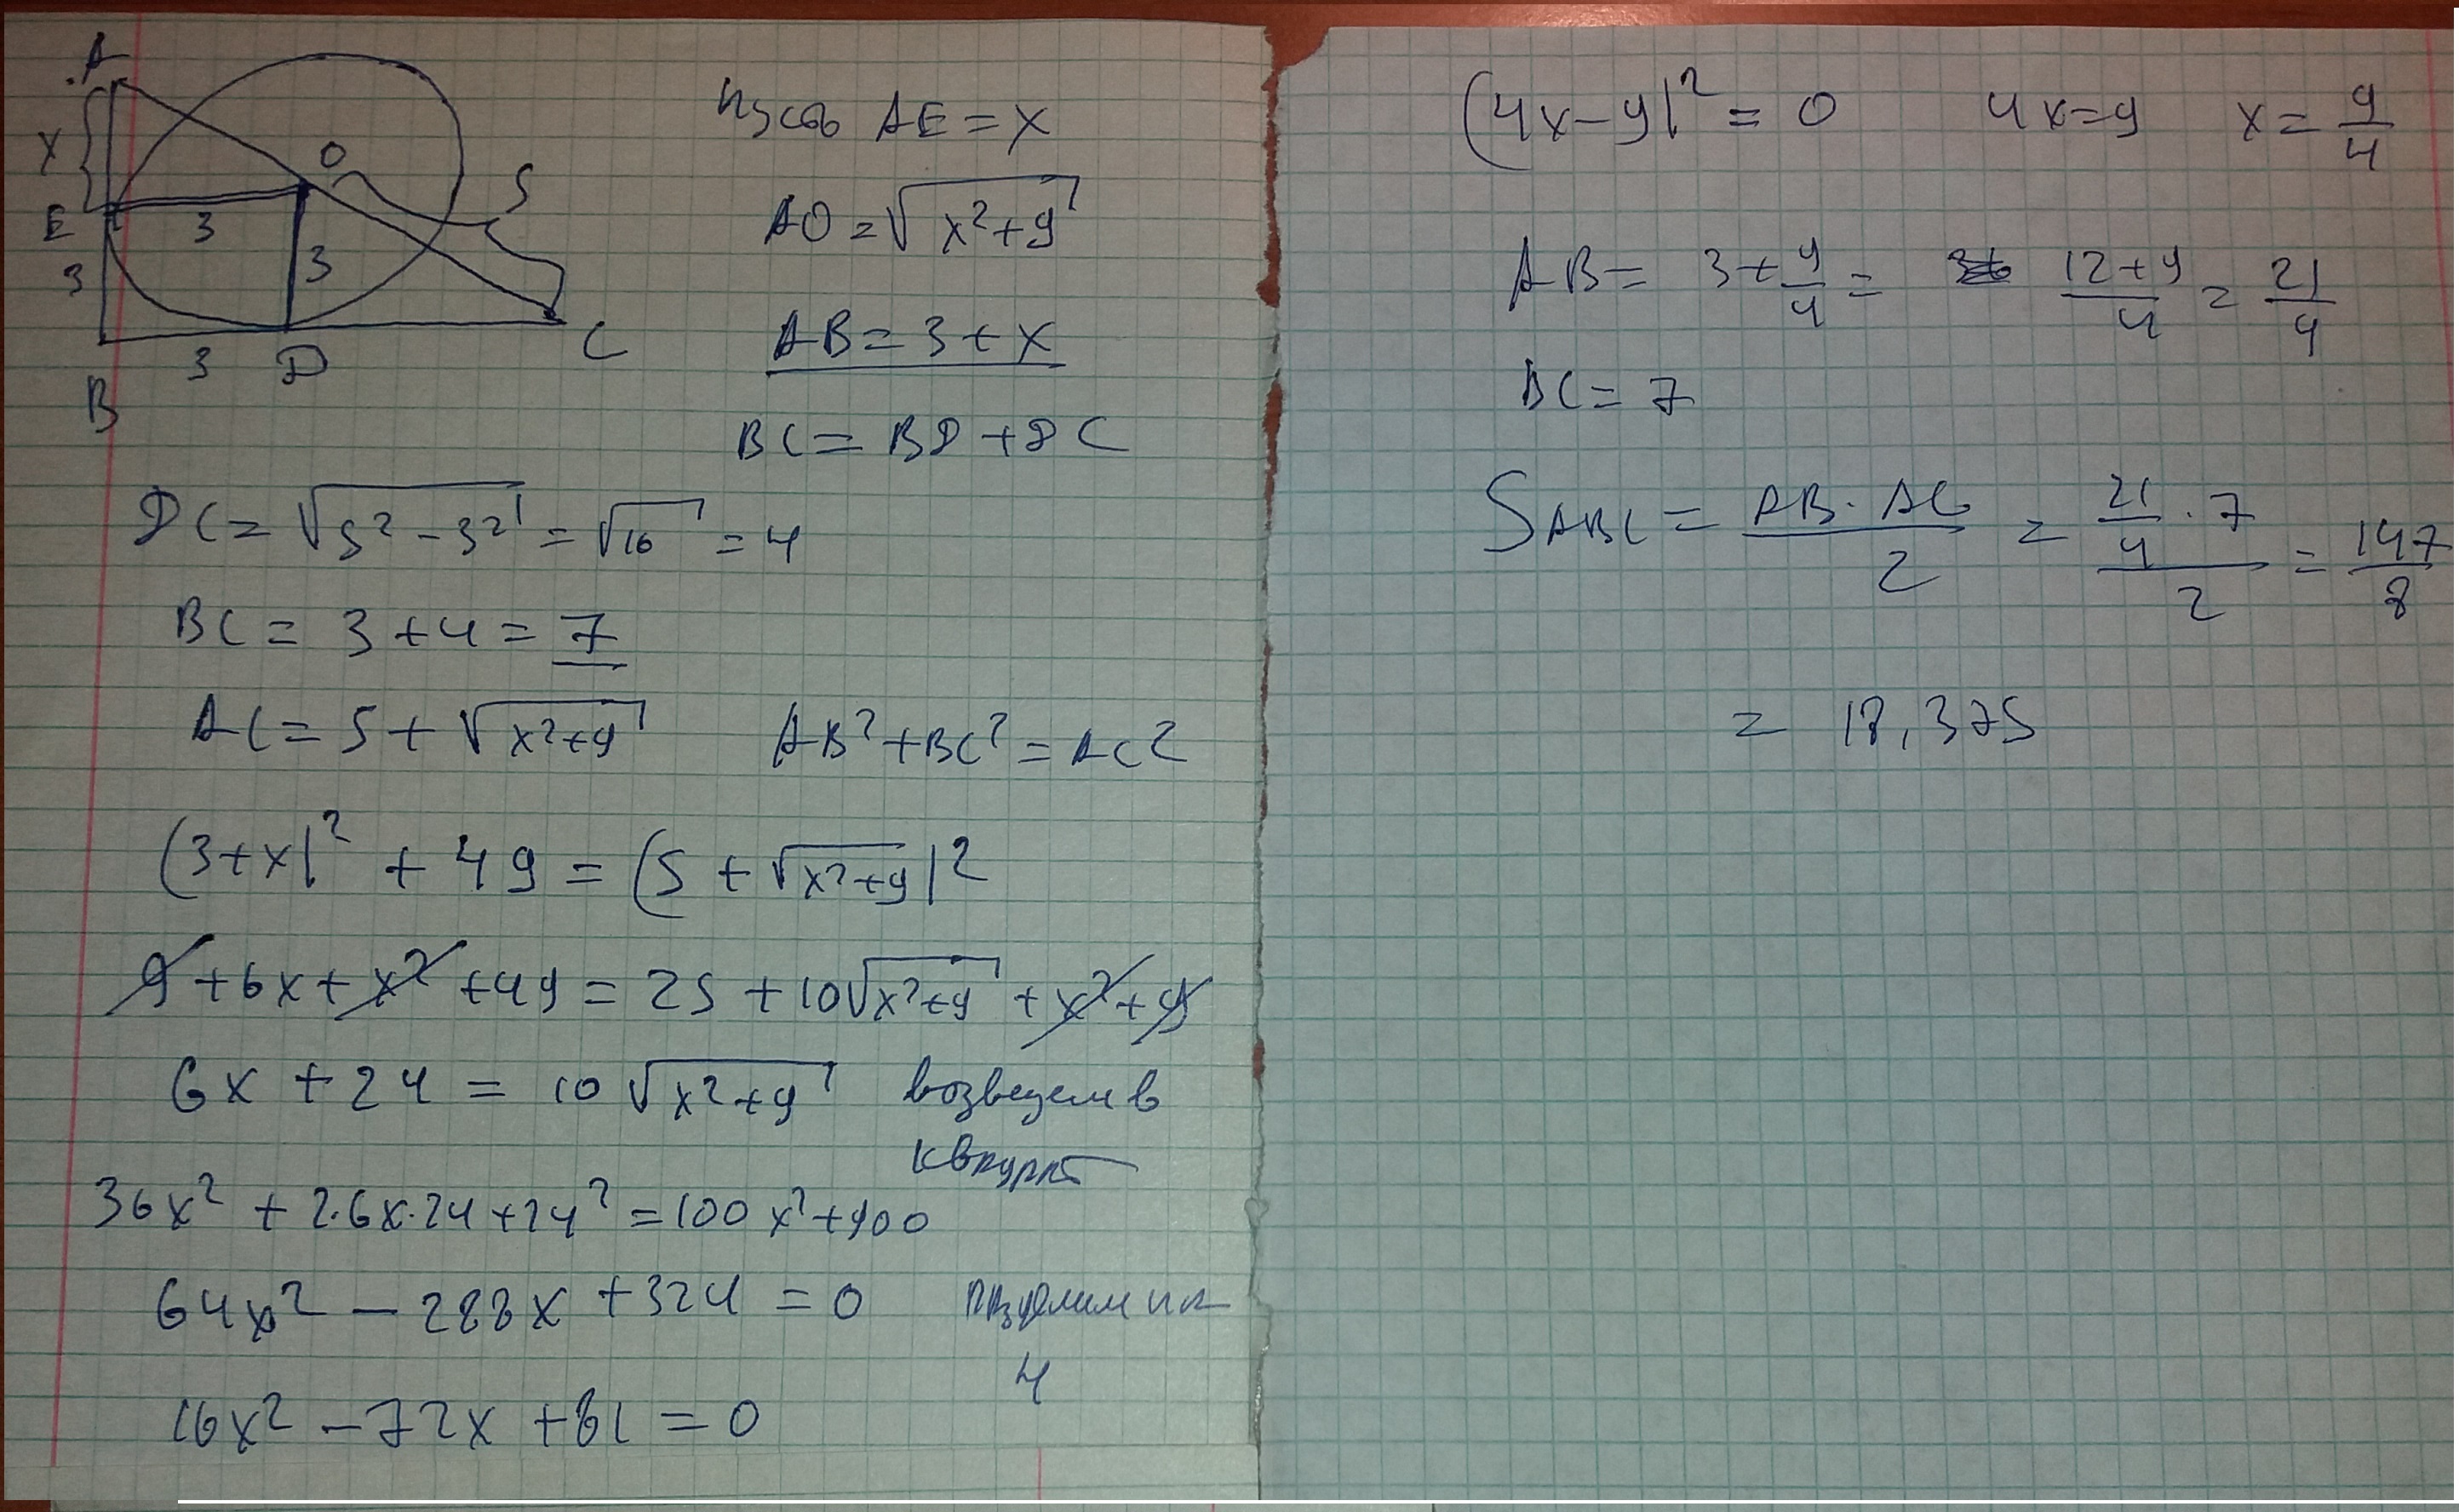 A
X
O
S
E
3
3
3
3
D
C
B
Пусть AE = x
AO = √(x²+9)
AB = 3 + x
BC = BD + DC
DC = √(5² - 3²) = √16 = 4
BC = 3 + 4 = 7
AC = 5 + √(x²+9) AB² + BC² = AC²
(3+x)² + 49 = (5 + √(x²+9))²
9 + 6x + x² + 49 = 25 + 10√(x²+9) + x² + 9
6x + 24 = 10 √(x²+9) возведем в
квадрат
36x² + 2·6x·24 + 24² = 100x² + 900
64x² - 288x + 324 = 0 разделим на
4
16x² - 72x + 81 = 0
(4x - 9)² = 0 4x = 9 x = 9/4
AB = 3 + 9/4 = (12 + 9)/4 = 21/4
BC = 7
S ABC = (AB · AC)/2 = (21/4 · 7)/2 = 147/8
= 18,375